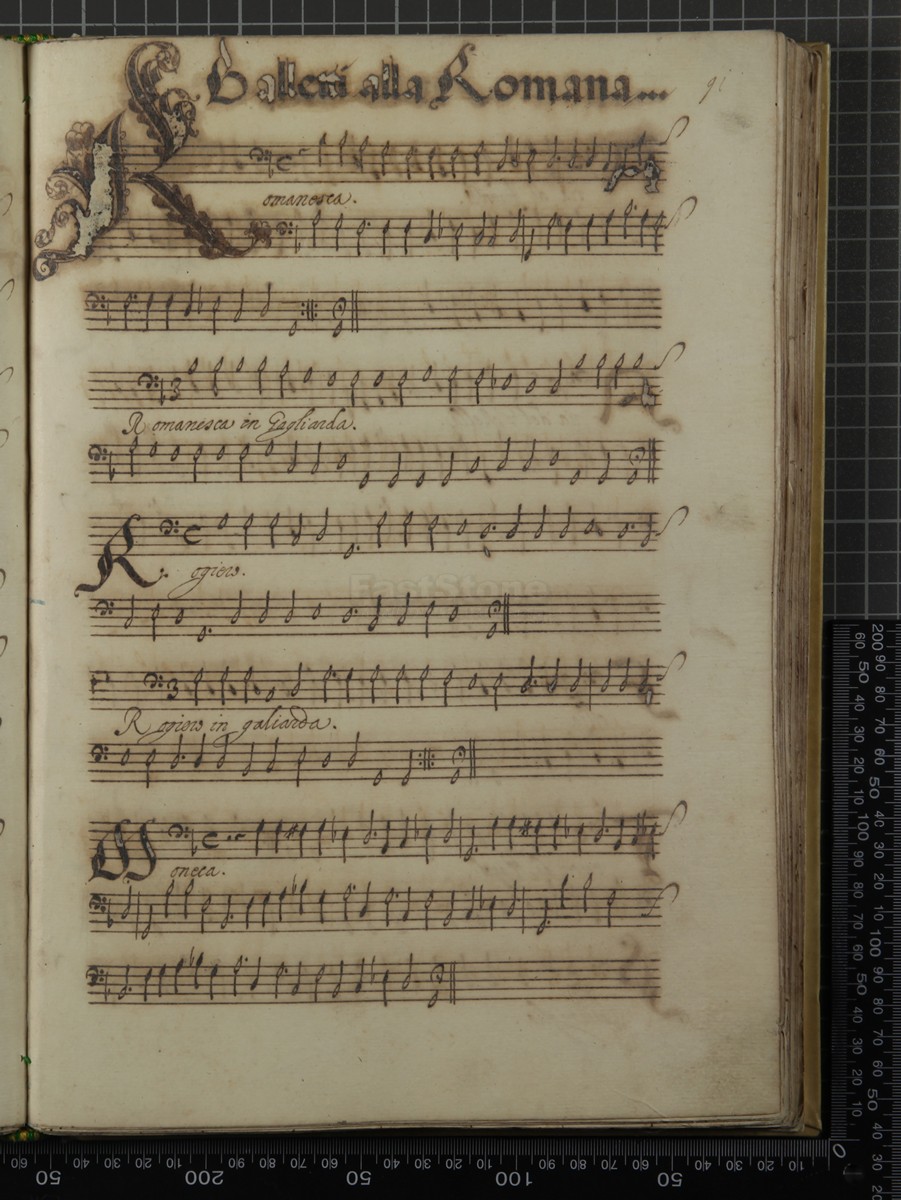 Balletti alla Romana...
91
Romanesca.
Romanesca in Gagliarda.
R: ogiero.
Rogiero in galiarda.
Moneca.
FastStone
200 90 80 70 60 50 40 30 20 10 100 90 80 70 60 50 40 30 20
60 50 40 30 20 10 100 90 80 70 60 50 40 30 20 10
60 50 40 30 20 10 200 90 80 70 60 50 40 30 20 10 100 90 80 70 60 50 40 30 20 10 0